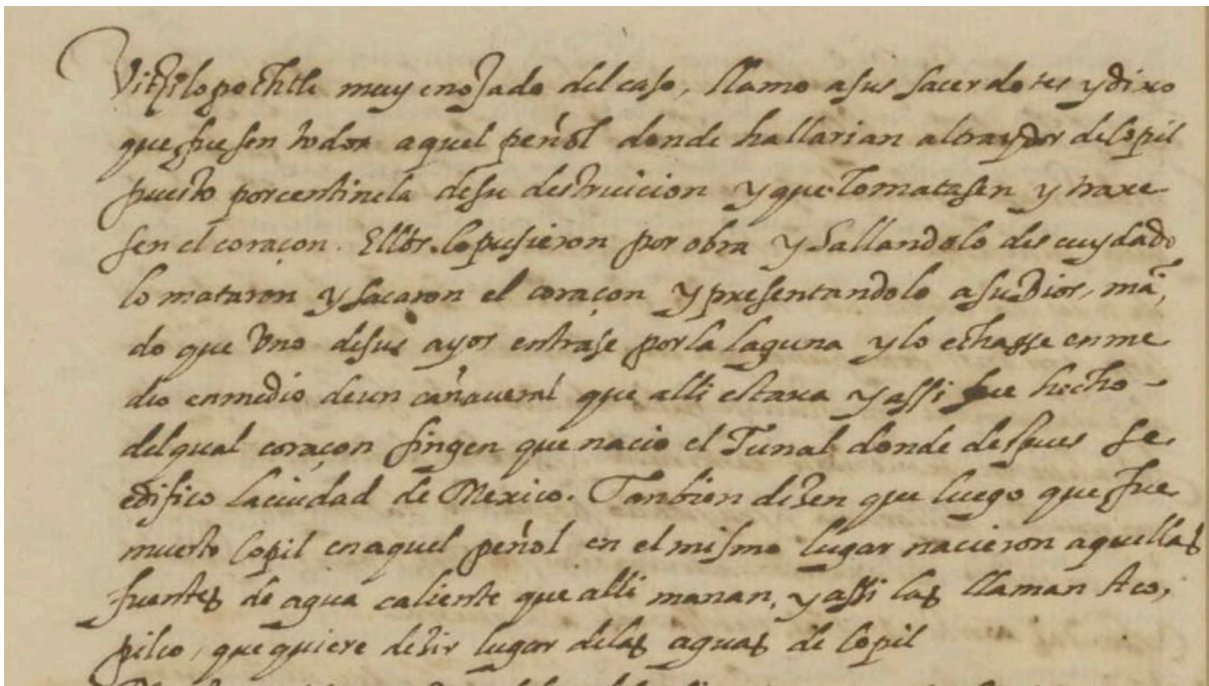 Vitzilopochtli muy enojado del caso, llamo a sus sacerdotes y dixo
que fuesen todos a quel peñol donde hallarian al traydor de Copil
puesto por centinela de su destruicion y que lo matasen y traxe
sen el coraçon. Ellos lo pusieron por obra y hallandolo descuydado
lo mataron y sacaron el coraçon y presentandolo a su Dios, mā,
do que uno de sus ayos entrase por la laguna y lo echasse en me
dio en medio de un cañaveral que alli estava y assi fue hecho -
del qual coraçon fingen que nacio el Tunal donde despues se
edifico la ciudad de Mexico. Tanbien dizen que luego que fue
muerto Copil en aquel peñol en el mismo lugar nacieron aquellas
fuentes de agua caliente que alli manan, y assi las llaman Aco,
pilco, que quiere dezir lugar de las aguas de Copil